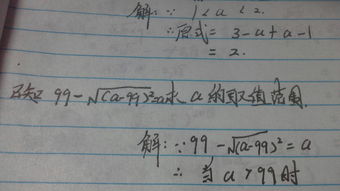 解:∵ 1<a<2.
∴原式= 3-a+a-1
= 2.
已知 99-√(a-99)²=a求 a 的取值范围.
解:∵99-√(a-99)²=a
∴当a>99时